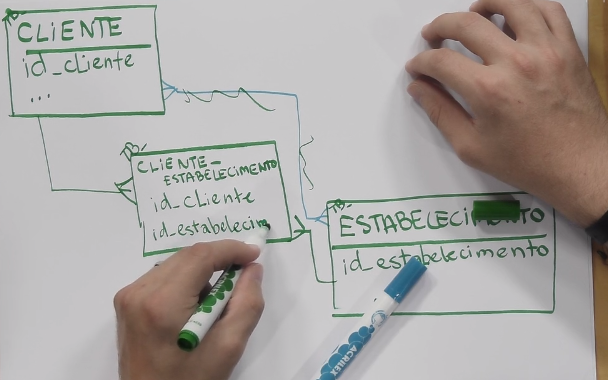 CLIENTE
id_cliente
...
CLIENTE_
ESTABELECIMENTO
id_cliente
id_estabelecim
ESTABELECIMENTO
id_estabelecimento
ACRILEX